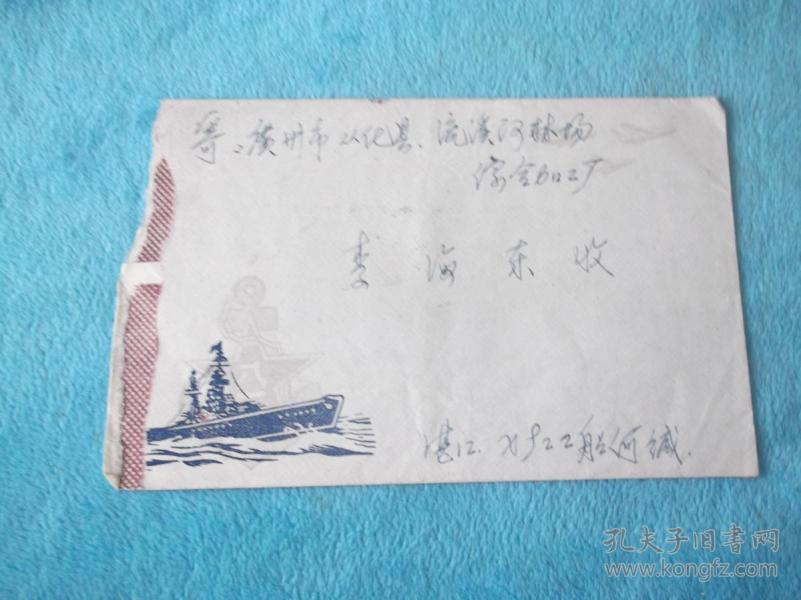 寄:廣州市从化县、流溪河林场
综合加工厂
李海东收
湛江. 船何缄.
孔夫子旧書网
www.kongfz.com